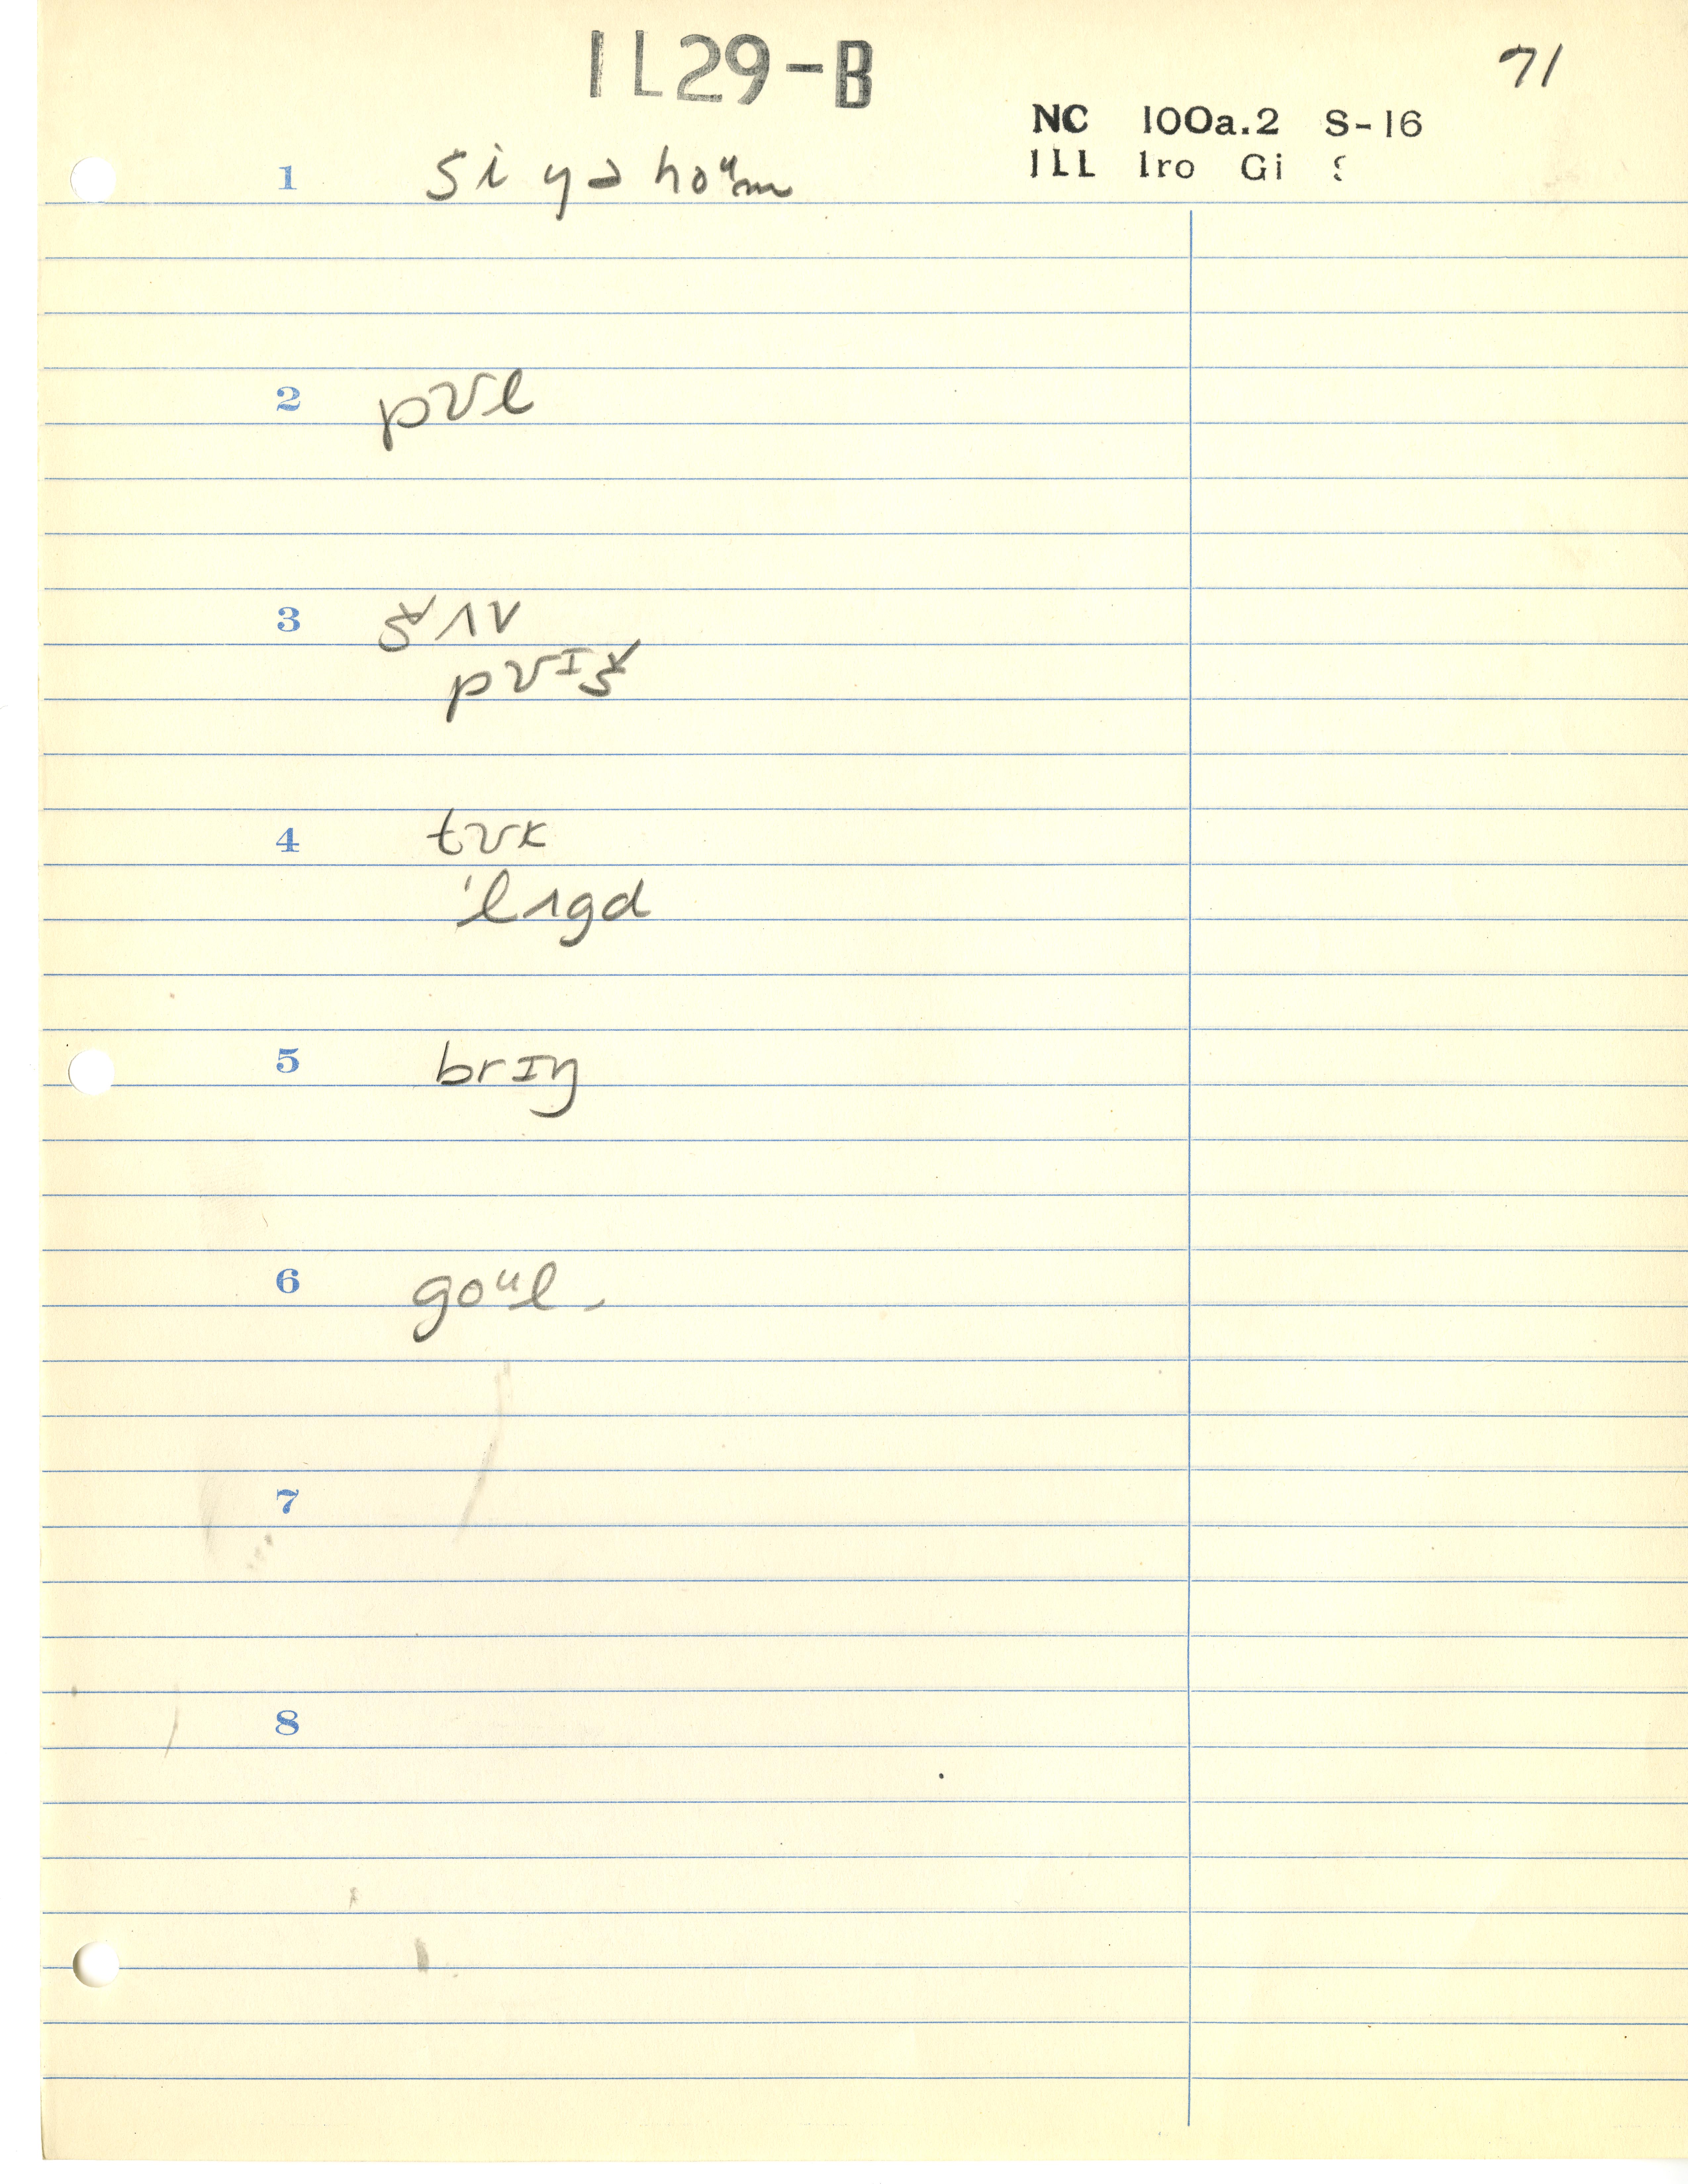 IL29-B
71
NC 100a.2 S-16
ILL Iro Gi S
1 si yə hoᵘm
2 pʊl
3 š ʌv
pʊɪš
4 tʊk
ˈlʌgd
5 brɪŋ
6 goᵘl -
7
8